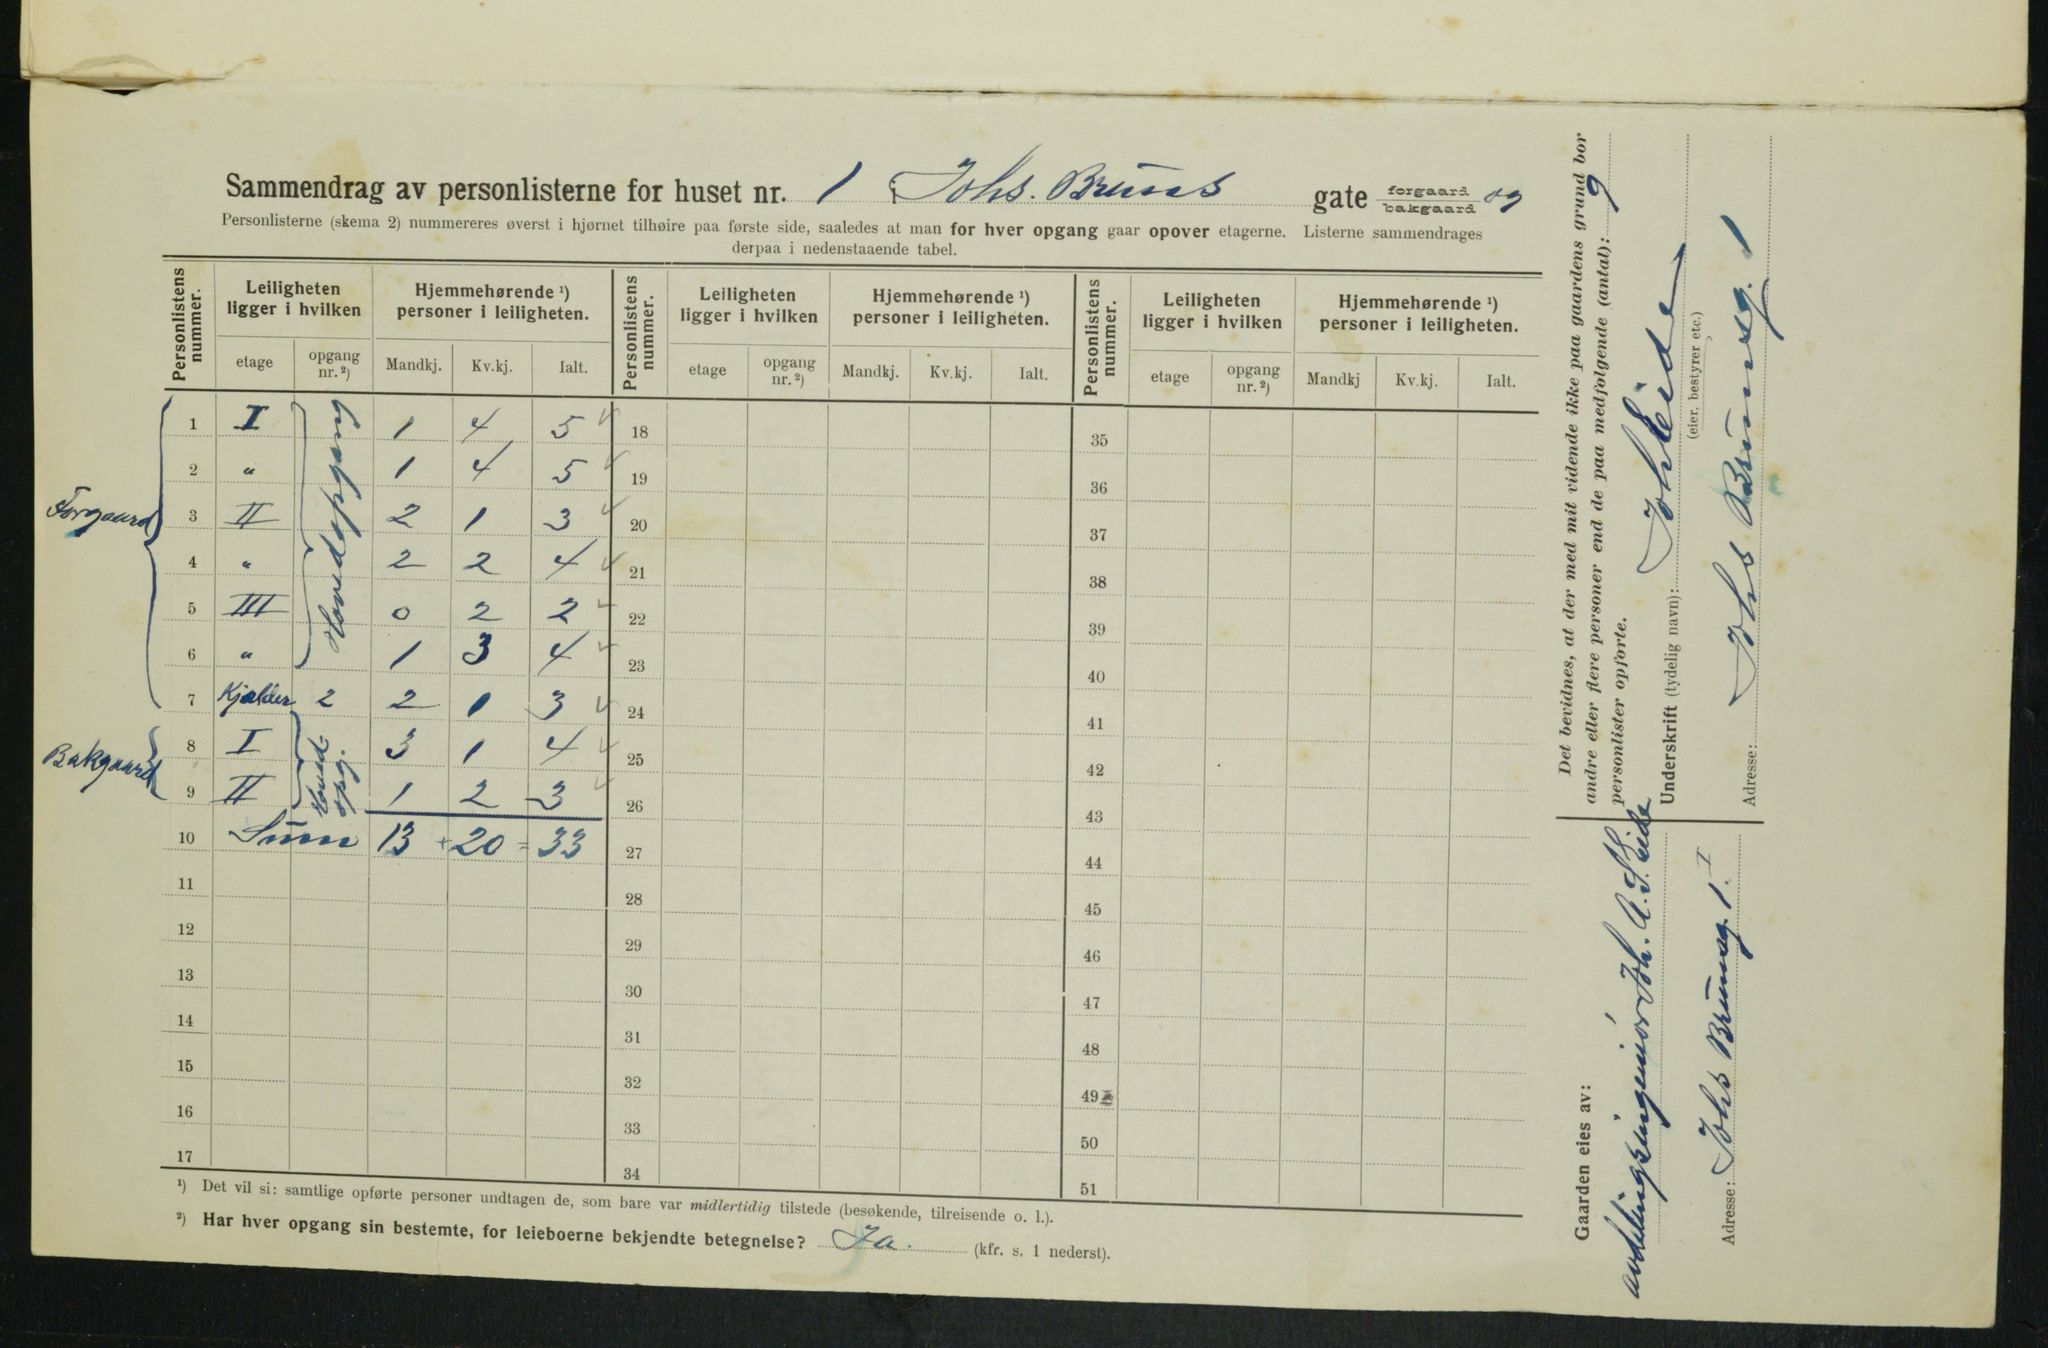 Sammendrag av personlisterne for huset nr. 1 i Johs. Bruns gate forgaard bakgaard og
Personlisterne (skema 2) nummereres øverst i hjørnet tilhøire paa første side, saaledes at man for hver opgang gaar opover etagerne. Listerne sammendrages
derpaa i nedenstaaende tabel.
Personlistens nummer. Leiligheten ligger i hvilken Hjemmehørende ¹) personer i leiligheten. Personlistens nummer. Leiligheten ligger i hvilken Hjemmehørende ¹) personer i leiligheten. Personlistens nummer. Leiligheten ligger i hvilken Hjemmehørende ¹) personer i leiligheten.
etage opgang nr. ²) Mandkj. Kv.kj. Ialt. etage opgang nr. ²) Mandkj. Kv.kj. Ialt. etage opgang nr. ²) Mandkj Kv.kj. Ialt.
Forgaard
Hovedopgang
1 I 1 4 5 18 35
2 " 1 4 5 19 36
3 II 2 1 3 20 37
4 " 2 2 4 21 38
5 III 0 2 2 22 39
6 " 1 3 4 23 40
7 Kjælder 2 2 1 3 24 41
Bakgaard
Hoved opg.
8 I 3 1 4 25 42
9 II 1 2 3 26 43
10 Sum 13 + 20 = 33 27 44
11 28 45
12 29 46
13 30 47
14 31 48
15 32 49
16 33 50
17 34 51
¹) Det vil si: samtlige opførte personer undtagen de, som bare var midlertidig tilstede (besøkende, tilreisende o. l.).
²) Har hver opgang sin bestemte, for leieboerne bekjendte betegnelse? Ja. (kfr. s. 1 nederst).
Det bevidnes, at der med mit vidende ikke paa gaardens grund bor
andre eller flere personer end de paa medfølgende (antal): 9
personlister opførte.
Underskrift (tydelig navn): Joh Eide
(eier, bestyrer etc.)
Adresse: Johs Brunsg. 1
Gaarden eies av:
avdelingsingeniør Joh. A. S. Eide
Adresse: Johs Brunsg. 1. I